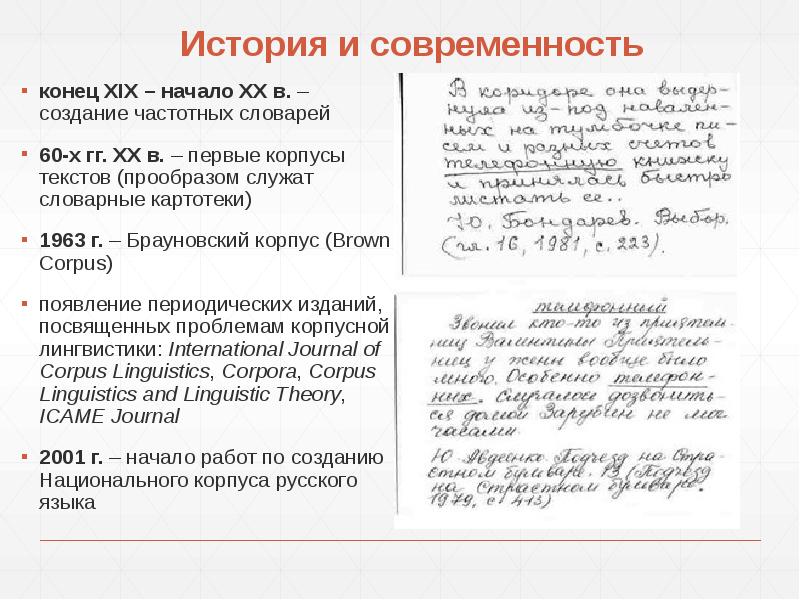 История и современность
конец XIX – начало XX в. –
создание частотных словарей
60-х гг. XX в. – первые корпусы
текстов (прообразом служат
словарные картотеки)
1963 г. – Брауновский корпус (Brown
Corpus)
появление периодических изданий,
посвященных проблемам корпусной
лингвистики: International Journal of
Corpus Linguistics, Corpora, Corpus
Linguistics and Linguistic Theory,
ICAME Journal
2001 г. – начало работ по созданию
Национального корпуса русского
языка
В коридоре она выдер-
нула из-под навален-
ных на тумбочке пи-
сем и разных счетов
телефонную книжку
и принялась быстро
листать ее..
Ю. Бондарев. Выбор.
(гл. 16, 1981, с. 223).
телефонный
Звонил кто-то из приятель-
ниц Валентины Приятель-
ниц у жены вообще было
много. Особенно телефон-
них. Случалой дозвонить-
ся домой Зарубин не мог
часами.
Ю Авдеенко Подъезд на Стра-
стном бульваре. (Подъезд
на Страстном бульваре.
1979, с 413)